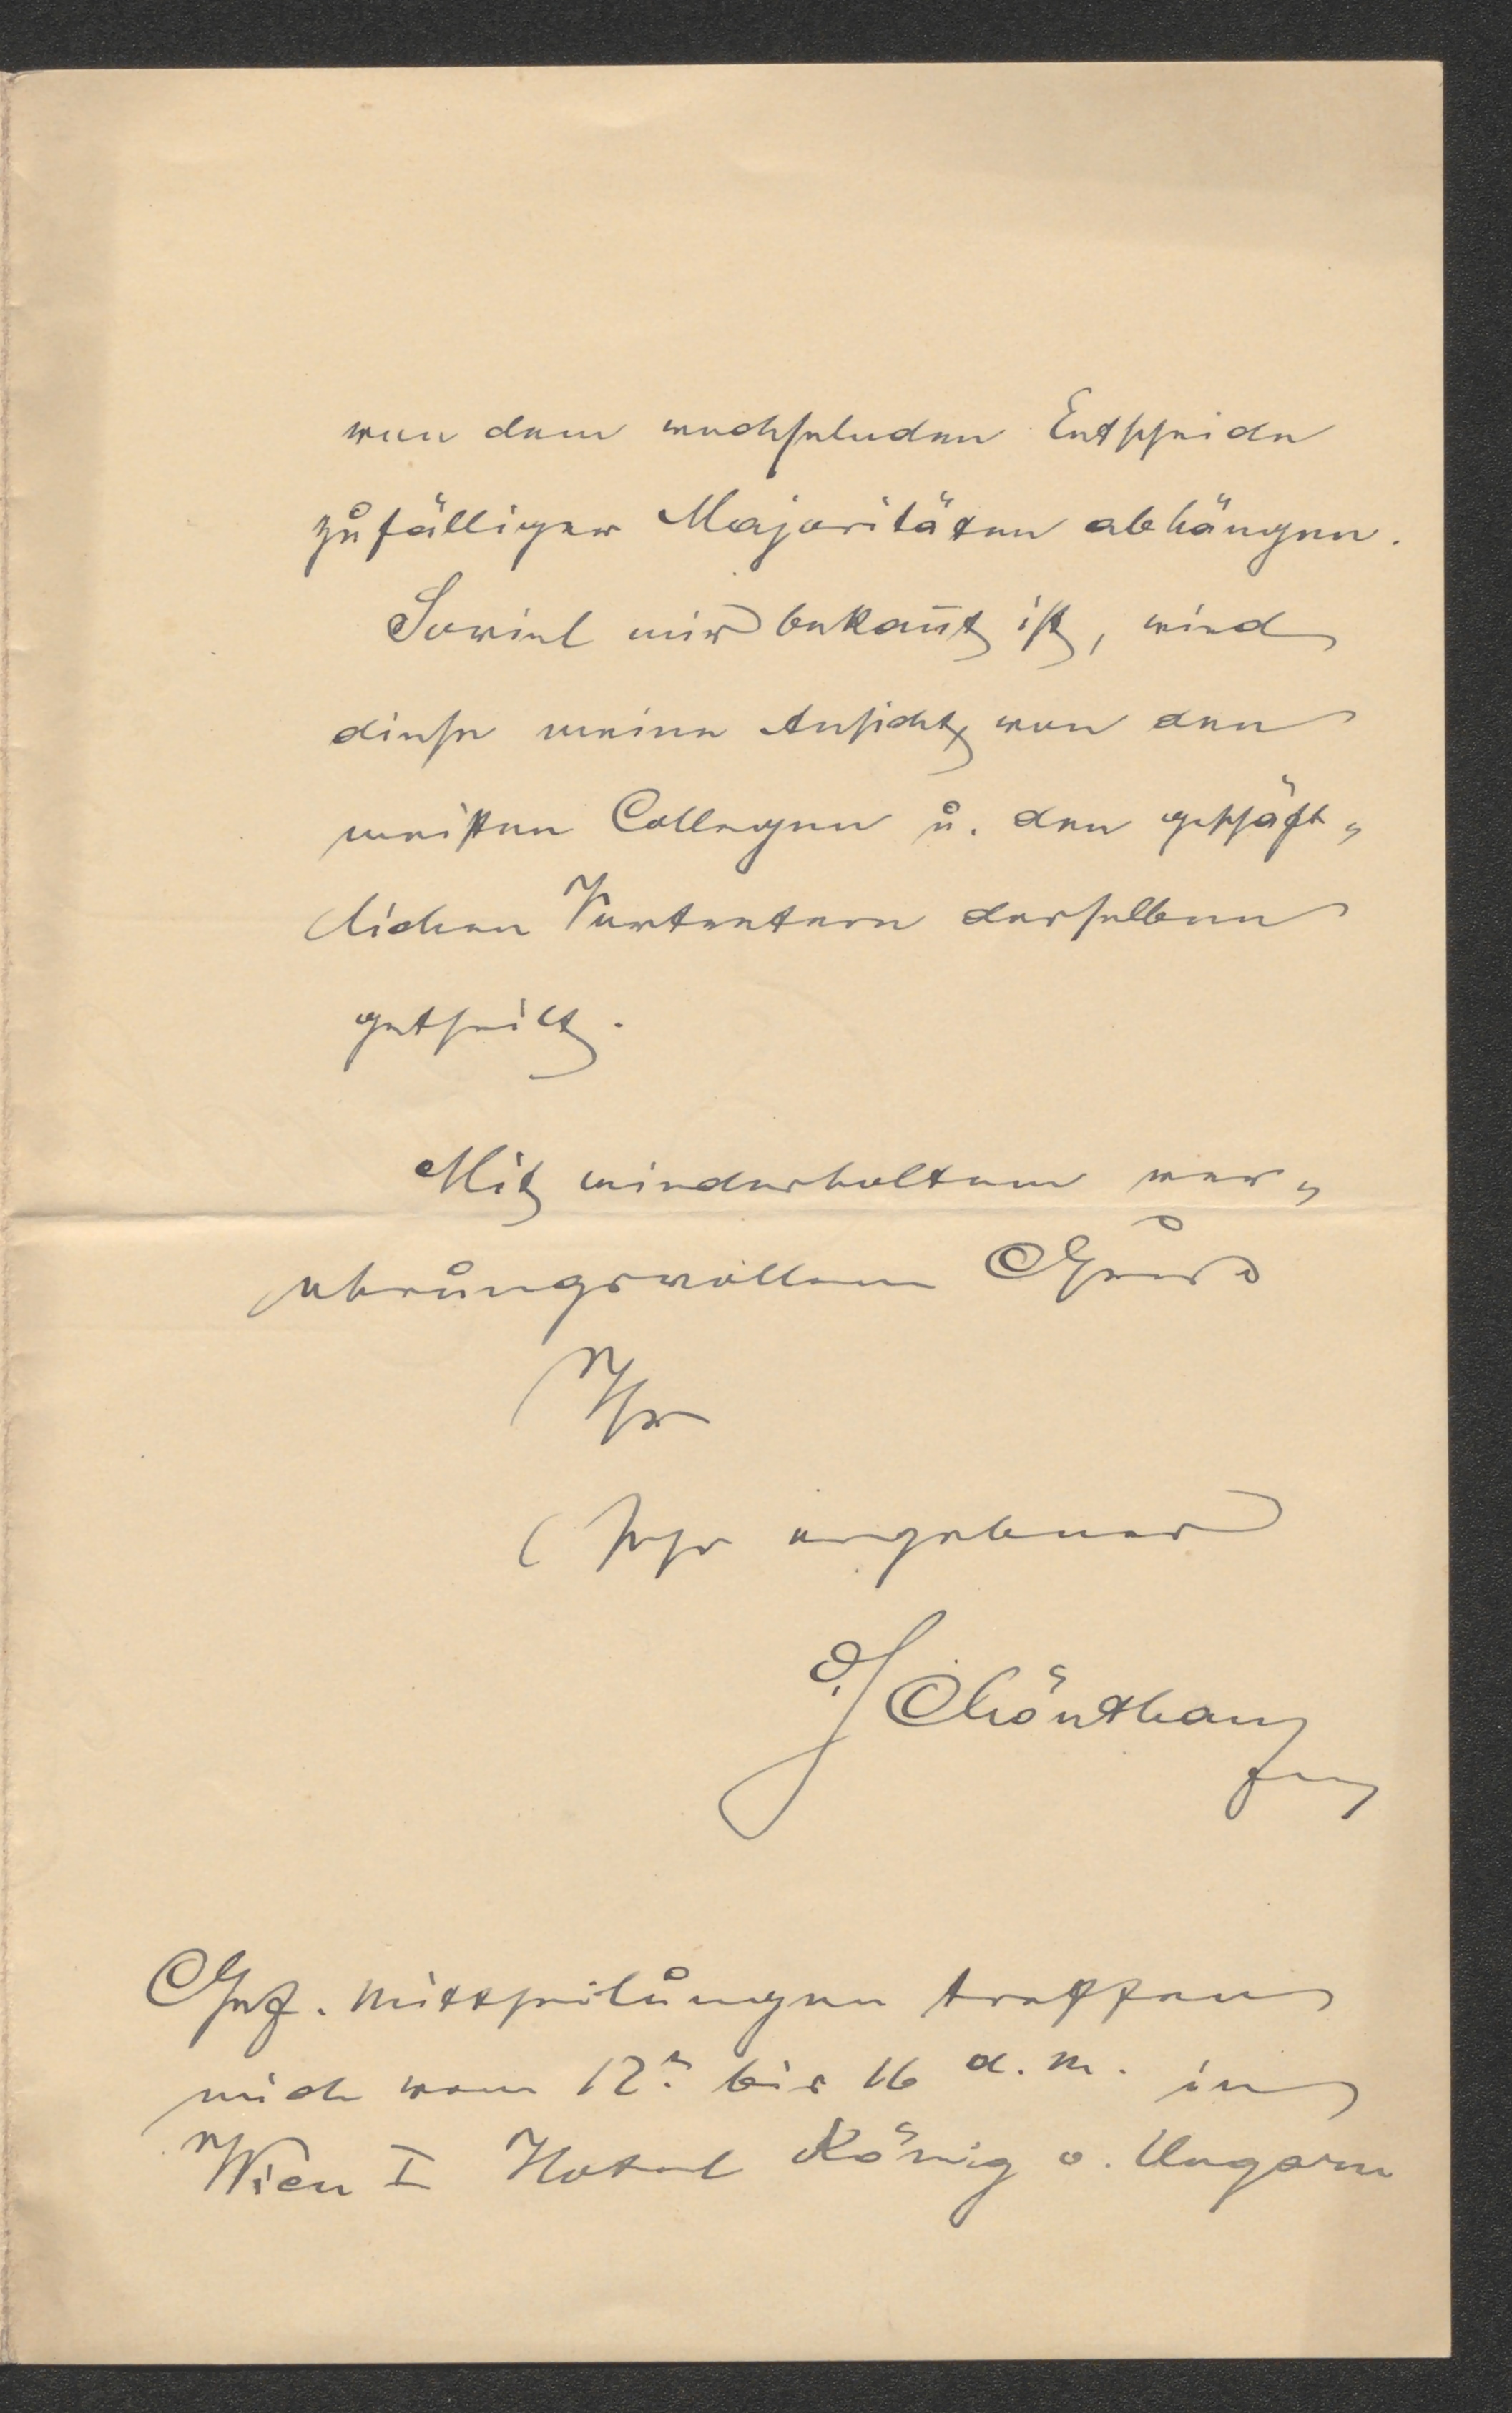 von dem wechselnden Entscheide
zufälliger Majoritäten abhängen.
Soviel mir bekan̄t ist, wird
diese meine Ansicht von den
meisten Collegen u. den geschäft„
lichen Vertretern derselben
getheilt.
Mit wiederholtem ver„
ehrungsvollem Gruß
Ihr
sehr ergebener
Schönthan
Gef. Mittheilungen treffen
mich vom 12. bis 16 d. M. in
Wien I Hotel König v. Ungarn